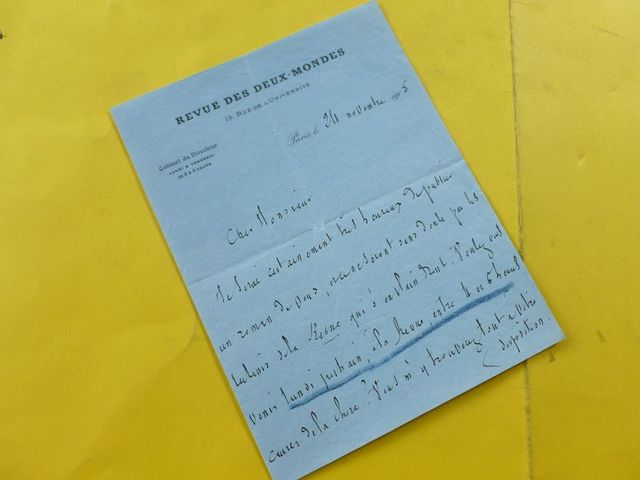 REVUE DES DEUX-MONDES
15, RUE DE L'UNIVERSITÉ
Paris, le 24 novembre 1905
Cabinet du Directeur
LUNDI & VENDREDI
Cher Monsieur
Je serai certainement très heureux de publier
un roman de vous, et ce ne seront sans doute pas les
lecteurs de la Revue qui s'en plaindront. Voulez-vous
venir lundi prochain, à la Revue entre 4 et 6 heures
causer de la chose ? Vous m'y trouverez tout à votre
disposition.